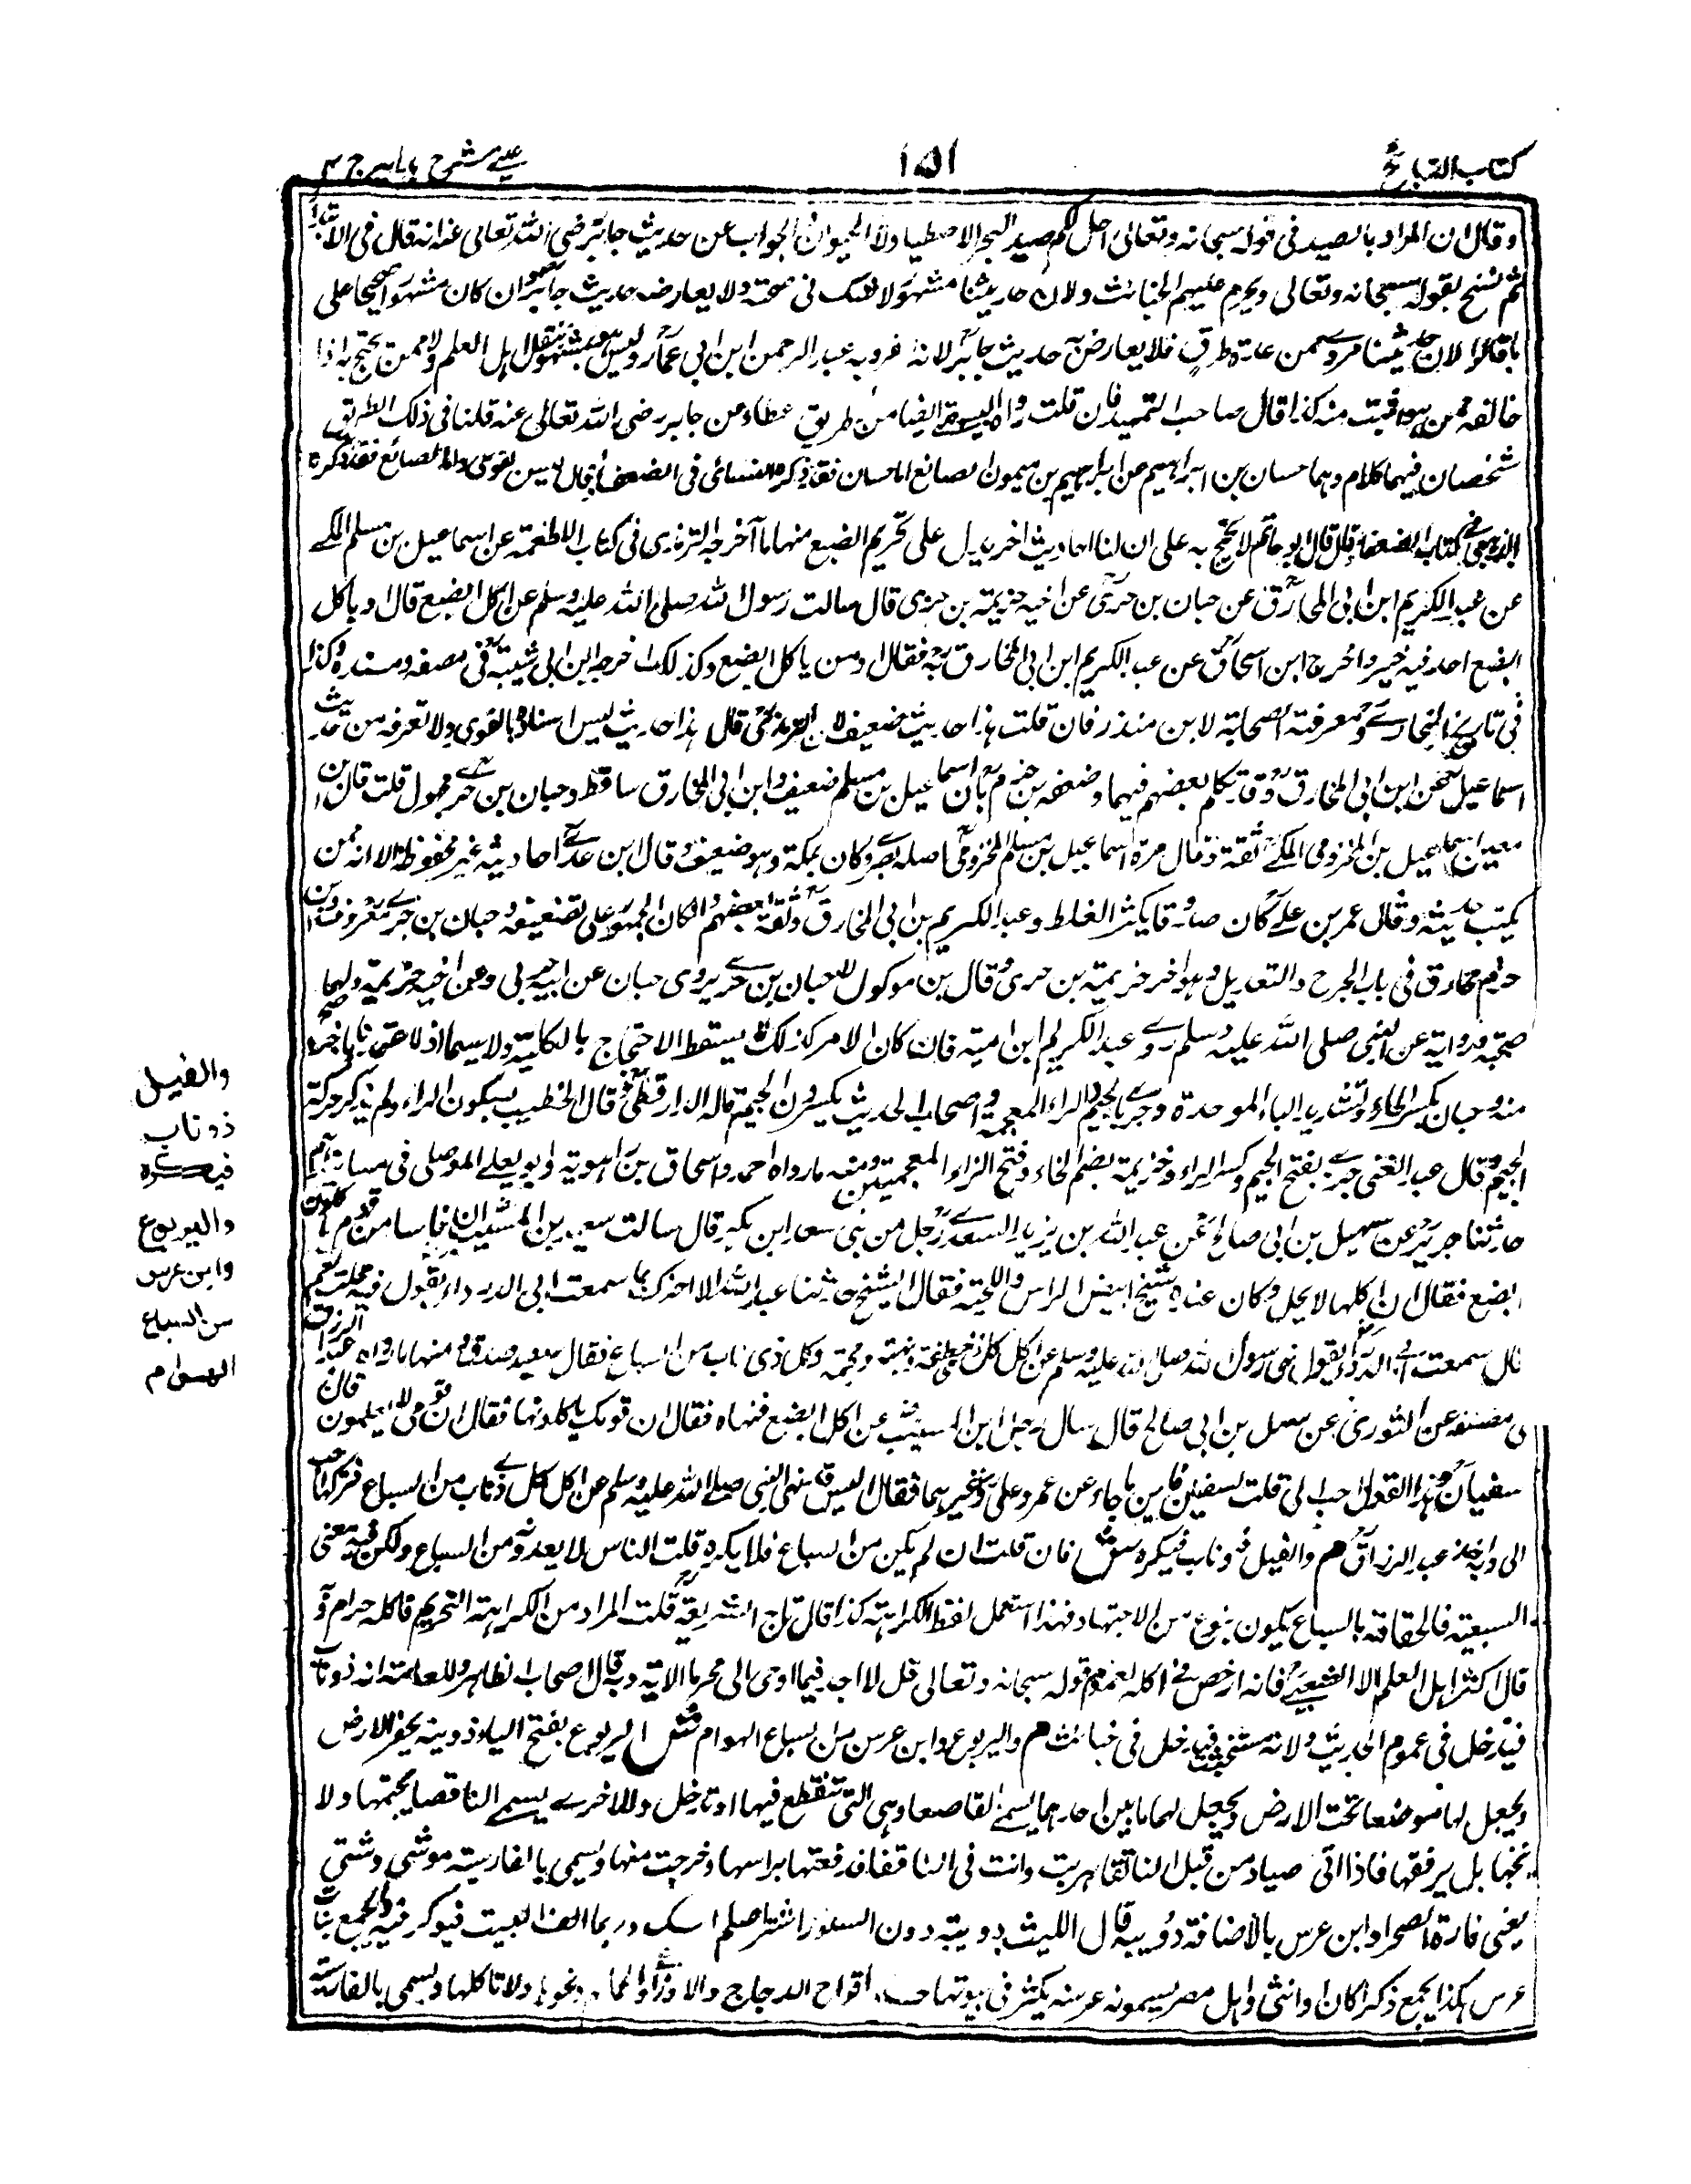 كتاب الذبائح
١٥١
عيني شرح هدايه ج ٤
وقال ان المراد بالصيد في قوله سبحانه وتعالى احل لكم صيد البحر الاصطياد ولا الحيوان والجواب عن حديث جابر رضي الله تعالى عنه انه قال في الابتداء
ثم نسخ بقوله سبحانه وتعالى ويحرم عليهم الخبائث ولان حديثنا مشهور لا شك في صحته ولا يعارضه حديث جابر وان كان مشهورا صحيحا على
ما قالوا لان حديثنا مروي من عدة طرق فلا يعارضه حديث جابر لانه انفرد به عبد الرحمن ابن ابي عمار وليس هو بمشهور بنقل اهل العلم ولا ممن يحتج به اذا
خالفه من هو اثبت منه كذا قال صاحب التمهيد فان قلت رواه البيهقي ايضا من طريق عطاء عن جابر رضي الله تعالى عنه قلنا في ذلك الطريق
شخصان فيهما كلام وهما حسان بن ابراهيم عن ابراهيم بن ميمون الصائغ اما حسان فقد ذكره النسائي في الضعفاء وقال ليس بقوي واما الصائغ فقد ذكره
الذهبي في كتاب الضعفاء وقال قال ابو حاتم لا يحتج به على ان لنا احاديث اخر يدل على تحريم الضبع منها ما آخرجه الترمذي في كتاب الاطعمة عن اسماعيل بن مسلم المكي
عن عبد الكريم ابن ابي المخارق عن حبان بن جزي عن اخيه خزيمة بن جزي قال سالت رسول الله صلى الله عليه وسلم عن اكل الضبع قال او ياكل
الضبع احد فيه خير واخرج ابن اسحاق عن عبد الكريم ابن ابي المخارق به فقال ومن ياكل الضبع وكذلك اخرجه ابن ابي شيبة في مصنفه ومسنده وكذا
في تاريخ البخاري ومعرفة الصحابة لابن منذر فان قلت هذا حديث ضعيف لان الترمذي قال هذا حديث ليس اسناده بالقوي ولا نعرفه من حديث
اسماعيل عن ابن ابي المخارق وقد تكلم بعضهم فيهما وضعفه بن حزم بان اسماعيل بن مسلم ضعيف وابن ابي المخارق ساقط وحبان بن جزي مجهول قلت قال ابن
معين اسماعيل بن المخزومي المكي ثقة وقال مرة اسماعيل بن مسلم المخزومي اصله بصري وكان بمكة وهو ضعيف وقال ابن عدي احاديثه غير محفوظة الا انه ممن
يكتب حديثه وقال عمر بن علي كان صدوقا يكثر الغلط وعبد الكريم بن ابي المخارق وثقه بعضهم وان كان الجمهور على تضعيفه وحبان بن جزي معروف وابن
حزم في باب الجرح والتعديل وهو اخو خزيمة بن جزي وقال بن موكول حبان بن جزي يروي حبان عن ابيه جزي وعن اخيه خزيمة ولهما
صحبة ورواية عن النبي صلى الله عليه وسلم روى عبد الكريم ابن امية فان كان الامر كذلك يسقط الاحتجاج بالكلية ولا سيما
وحبان بكسر الحاء وتشديد الباء الموحدة وجزي بالجيم والزاء المعجمة واصحاب الحديث يكسرون الجيم قاله الدارقطني وقال الخطيب بسكون الزاء ولم يذكر حركة
الجيم وقال عبد الغني جزي بفتح الجيم وكسر الزاء وخزيمة بضم الخاء وفتح الزاء المعجمتين ومنه ما رواه احمد واسحاق بن راهويه وابو يعلى الموصلي في مسانيدهم
حدثنا جرير عن سهيل بن ابي صالح عن عبد الله بن يزيد السعدي رجل من بني سعد ابن بكر قال سالت سعيد بن المسيب ان ناسا من قومي ياكلون
الضبع فقال ان اكلها لا يحل وكان عنده شيخ ابيض الراس واللحية فقال الشيخ حدثنا عبد الله الا اخبرك بما سمعت ابي الدرداء يقول فيه قلت نعم
قال سمعت ابي الدرداء يقول نهى رسول الله صلى الله عليه وسلم عن اكل كل ذي خطفة ونهبة ومجثمة وكل ذي ناب من السباع فقال سعيد صدق ومنها ما رواه عبد الرزاق
في مصنفه عن الثوري عن سهل بن ابي صالح قال سال رجل ابن المسيب عن اكل الضبع فنهاه فقال ان قومك ياكلونها فقال ان قومي لا يعلمون قال
سفيان وهذا القول احب الي قلت لسفين فاين ما جاء عن عمر وعلي وغيرهما فقال اليس قد نهى النبي صلى الله عليه وسلم عن اكل كل ذي ناب من السباع فتركها احب
الي وبه اخذ عبد الرزاق م والفيل ذو ناب فيكره ش فان قلت ان لم يكن من السباع فلا يكره قلت الناس لا يعدونه من السباع ولكن فيه معنى
السبعية فالحقاقه بالسباع يكون بنوع من الاجتهاد فلهذا استعمل لفظ الكراهة كذا قال تاج الشريعة قلت المراد من الكراهة التحريم فاكله حرام و
قال اكثر اهل العلم الا الشعبي فانه ارخص في اكله لعموم قوله سبحانه وتعالى قل لا اجد فيما اوحي الي محرما الاية وبه قال اصحاب الظاهر وللعامة انه ذو ناب
فيدخل في عموم الحديث ولانه مستخبث فيدخل في خبائث م واليربوع وابن عرس من سباع الهوام ش اليربوع بفتح الياء دويبة يحفر الارض
ويجعل لها موضعا تحت الارض ويجعل لهما بابين احدهما يسمى القاصعاء وهي التي تقطع فيها او تدخل والاخرى يسمى النافقا يجتمها ولا
بل يرفقها فاذا اتى صياد من قبل النافقا هربت وانت في النافقاء فدفعتها براسها وخرجت منها ويسمى بالفارسية موش دشتي
يعني فارة الصحراء وابن عرس بالاضافة دويبة قال الليث دويبة دون السنور اشتر اصلم اسك وربما الف البيت فيوكر فيه والجمع بنات
عرس هكذا يجمع ذكرا كان او انثى واهل مصر يسمونه عرسه يكثر في بيوتها افراخ الدجاج والاوز والحمام ونحوها ولا تاكلها ويسمى بالفارسية
والفيل
ذو ناب
فيكره
واليربوع
وابن عرس
من السباع
الهوام